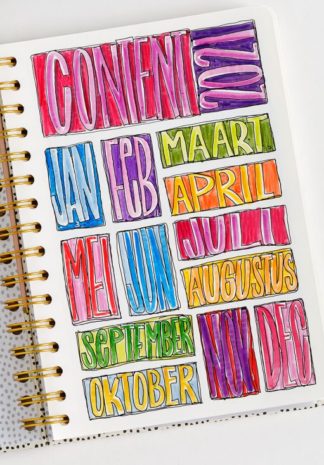 CONTENT 2021
JAN FEB MAART
APRIL
MEI JUN JULI
AUGUSTUS
SEPTEMBER
OKTOBER
NOV DEC